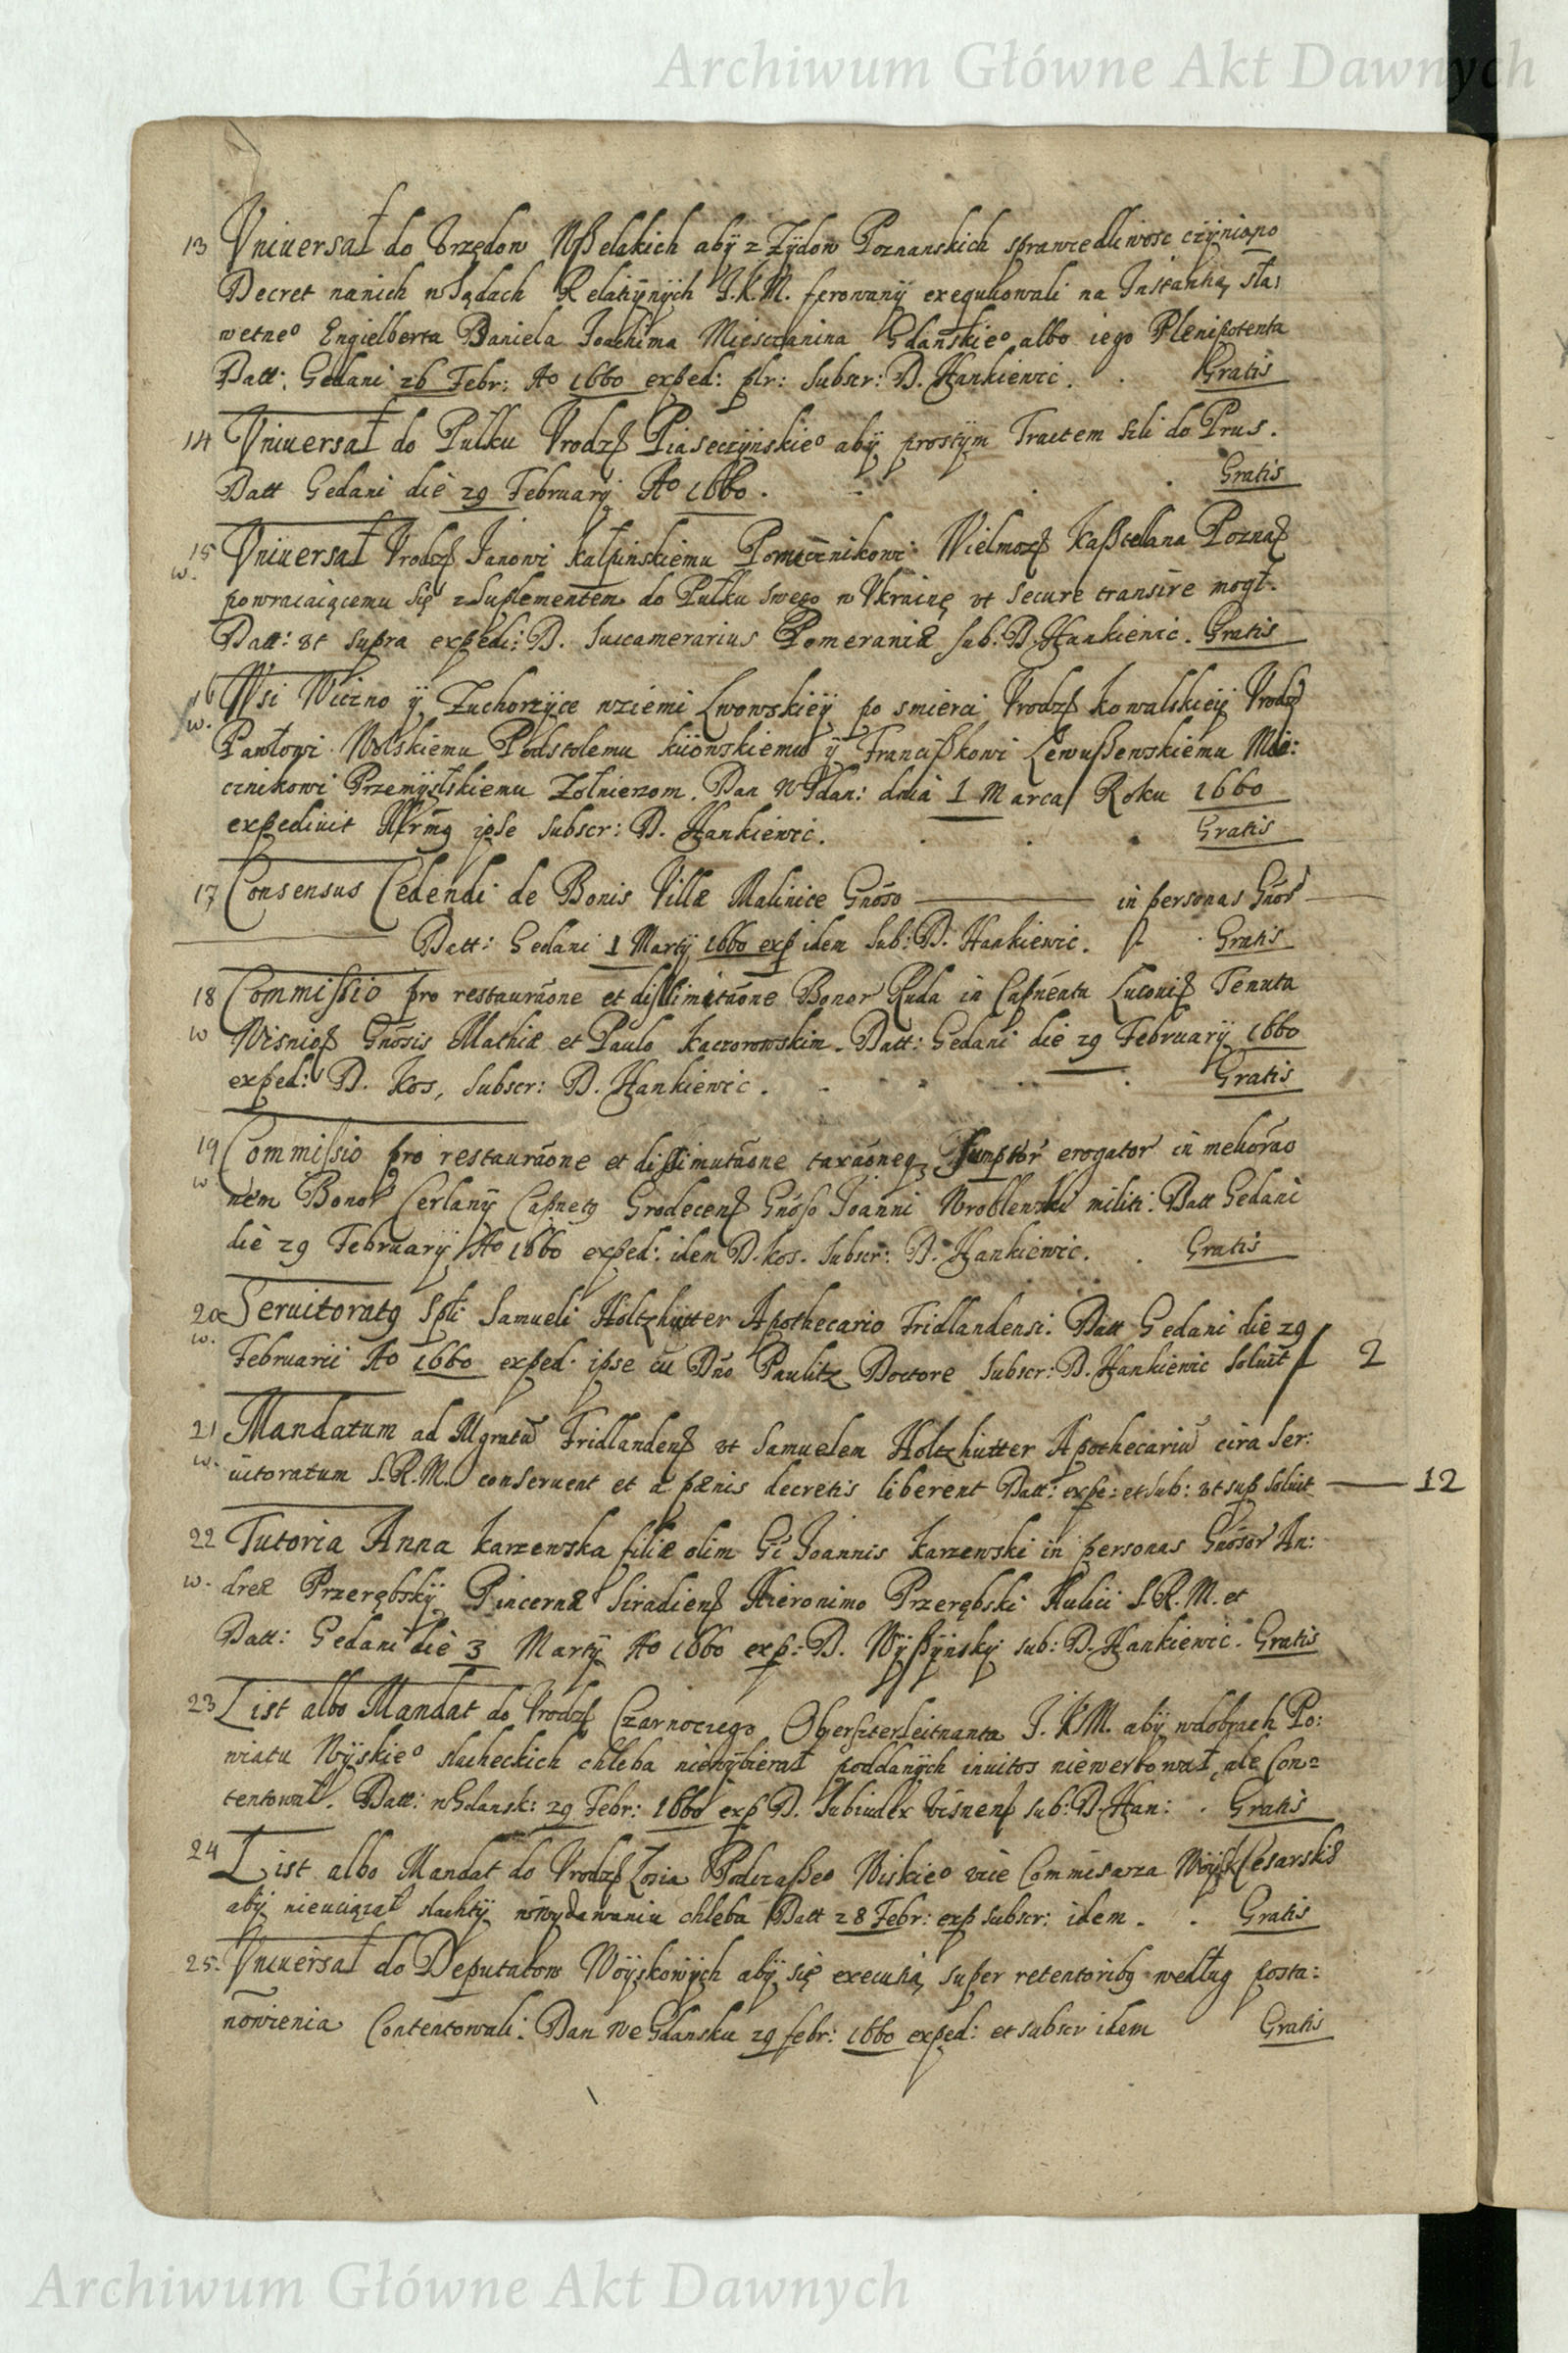 Archiwum Główne Akt Dawnych
13 Vniuersał do Vrzędow Wßelakich abÿ z Zÿdow Poznanskich sprawiedliwosc czÿnic po
Decret nanich w Sądach Relatÿnÿch J.K.M. ferowanÿ exequuowali na Instantią sła:
wetneº Engielberta Daniela Joachima Miesczanina Gdańskieº albo iego Plenipotenta
Datt: Gedani 26 Febr: Aº 1660 exped: plr: Subscr: D. Hankiewic. Gratis
14 Vniuersał do Pułku Vrodz Piaseczÿnskieº abÿ prostÿm Tractem szli do Prus.
Datt Gedani die 29 Februarÿ Aº 1660. Gratis
15 Vniuersał Vrodz Janowi Kałpinskiemu Pomocznikowi Wielmoz Kaßtelana Pozna
w. powracaiącemu się z Suplementem do Pułku swego w Vkrainę vt secure transire mogł.
Datt: vt supra expedi: D. Succamerarius Pomeraniæ sub: D. Hankiewic. Gratis
16 Wsi Wiczno ÿ Zuchorzÿce w ziemi Lwowskieÿ po smierci Vrodz Kowalskieÿ Vrodz
w. Pawłowi Wolskiemu Podstolemu kiiowskiemu ÿ Francißkowi Lewußewskiemu Mie:
cznikowi Przemÿslskiemu Zołnierzom. Dan W Gdan: dnia 1 Marca Roku 1660
expediuit ipse subscr: D. Hankiewic. Gratis
17 Consensus Cedendi de Bonis Villæ Malinice Gnoso in personas Gnor
Datt: Gedani 1 Martÿ 1660 exp idem Sub: D. Hankiewic. Gratis
18 Commissio pro restauraõne et dislimitaõne Bonor Ruda in Capneatu Tenuta
w Gnosis Mathiæ et Paulo Kaczorowskim. Datt: Gedani die 29 Februarÿ 1660
exped: D. Kos, Subscr: D. Hankiewic. Gratis
19 Commissio pro restauraõne et taxaõneq Sumptor erogator in meliorao
w nem Bonor Cerlanÿ Grodecens Gnoso Joanni Wroblewski militi. Datt Gedani
die 29 Februarÿ Aº 1660 exped: idem D. Kos. Subscr: D. Hankiewic. Gratis
20 Seruitoratq Spli Samueli Holtzhutter Apothecario Fridlandensi. Datt Gedani die 29
w. Februarii Aº 1660 exped. ipse cu Dno Paulitz Doctore Subscr: D. Hankiewic soluit 2
21 Mandatum ad Mgratu Fridlandens vt Samuelem Holtzhutter Apothecariu circa Ser:
w. uitoratum S.R.M. conseruent et a pænis decretis liberent Datt: expe: et sub: vt sup soluit 12
22 Tutoria Anna Karzewska filiæ olim Gi Joannis Karzewski in personas Gnosor An:
w. dreæ Przerębskÿ Pincernæ Siradiens Hieronimo Przerębski Aulici S.R.M. et
Datt: Gedani die 3 Martÿ Aº 1660 exp: D. Wÿßÿnskÿ sub: D. Hankiewic. Gratis
23 List albo Mandat do Vrodz Czarnoczego Oberszterleitnanta J.K.M. abÿ w dobrach Po:
wiatu Wÿskieº slacheckich chleba niewÿbierał poddanÿch inuitos niewerbował, ale Con=
tentował. Datt: w Gdansk: 29 Febr: 1660 exp D. Subiudex Visnens sub: D. Han: Gratis
24 List albo Mandat do Vrodz Zosia Podczaßeº Wiskieº vice Commisarza Woÿsk Cesarskiº
abÿ nieuciązał slachtÿ w wÿdawaniu chleba Datt 28 Febr: exp subscr: idem. Gratis
25. Vniuersał do Deputatow Woÿskowÿch abÿ się executią super retentoribq według posta:
nowienia Contentowali. Dan We Gdansku 29 febr: 1660 exped: et subscr idem Gratis
Archiwum Główne Akt Dawnych